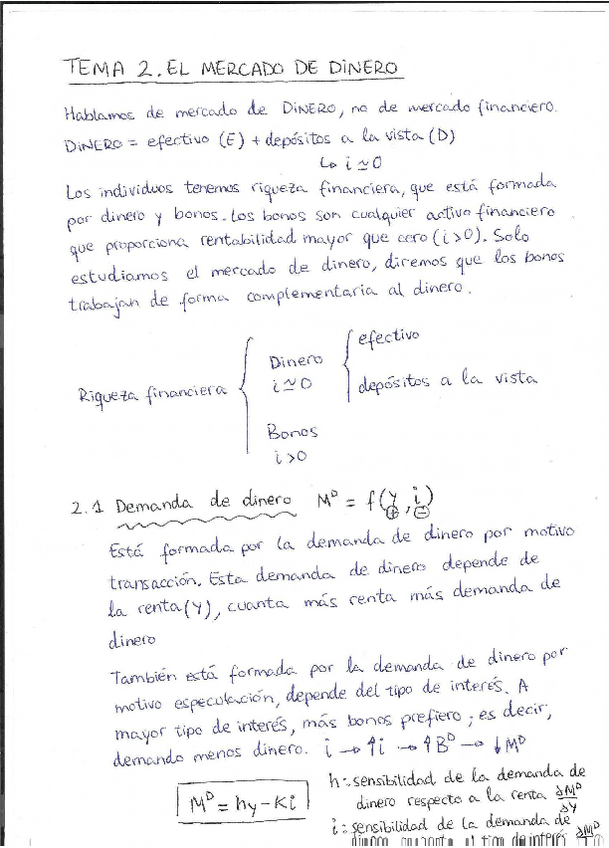 TEMA 2. EL MERCADO DE DINERO
Hablamos de mercado de DINERO, no de mercado financiero.
DINERO = efectivo (E) + depósitos a la vista (D)
↳ i ≃ 0
Los individuos tenemos riqueza financiera, que está formada
por dinero y bonos. Los bonos son cualquier activo financiero
que proporciona rentabilidad mayor que cero (i>0). Solo
estudiamos el mercado de dinero, diremos que los bonos
trabajan de forma complementaria al dinero.
efectivo
Dinero
i ≃ 0
Riqueza financiera
depósitos a la vista
Bonos
i>0
2.1 Demanda de dinero M^D = f(y, i)
⊕ ⊖
Está formada por la demanda de dinero por motivo
transacción. Esta demanda de dinero depende de
la renta (Y), cuanta más renta más demanda de
dinero
También está formada por la demanda de dinero por
motivo especulación, depende del tipo de interés. A
mayor tipo de interés, más bonos prefiero; es decir,
demando menos dinero. i → ↑i → ↑B^D → ↓M^D
M^D = hy - Ki
h: sensibilidad de la demanda de
dinero respecto a la renta ∂M^D/∂Y
i: sensibilidad de la demanda de